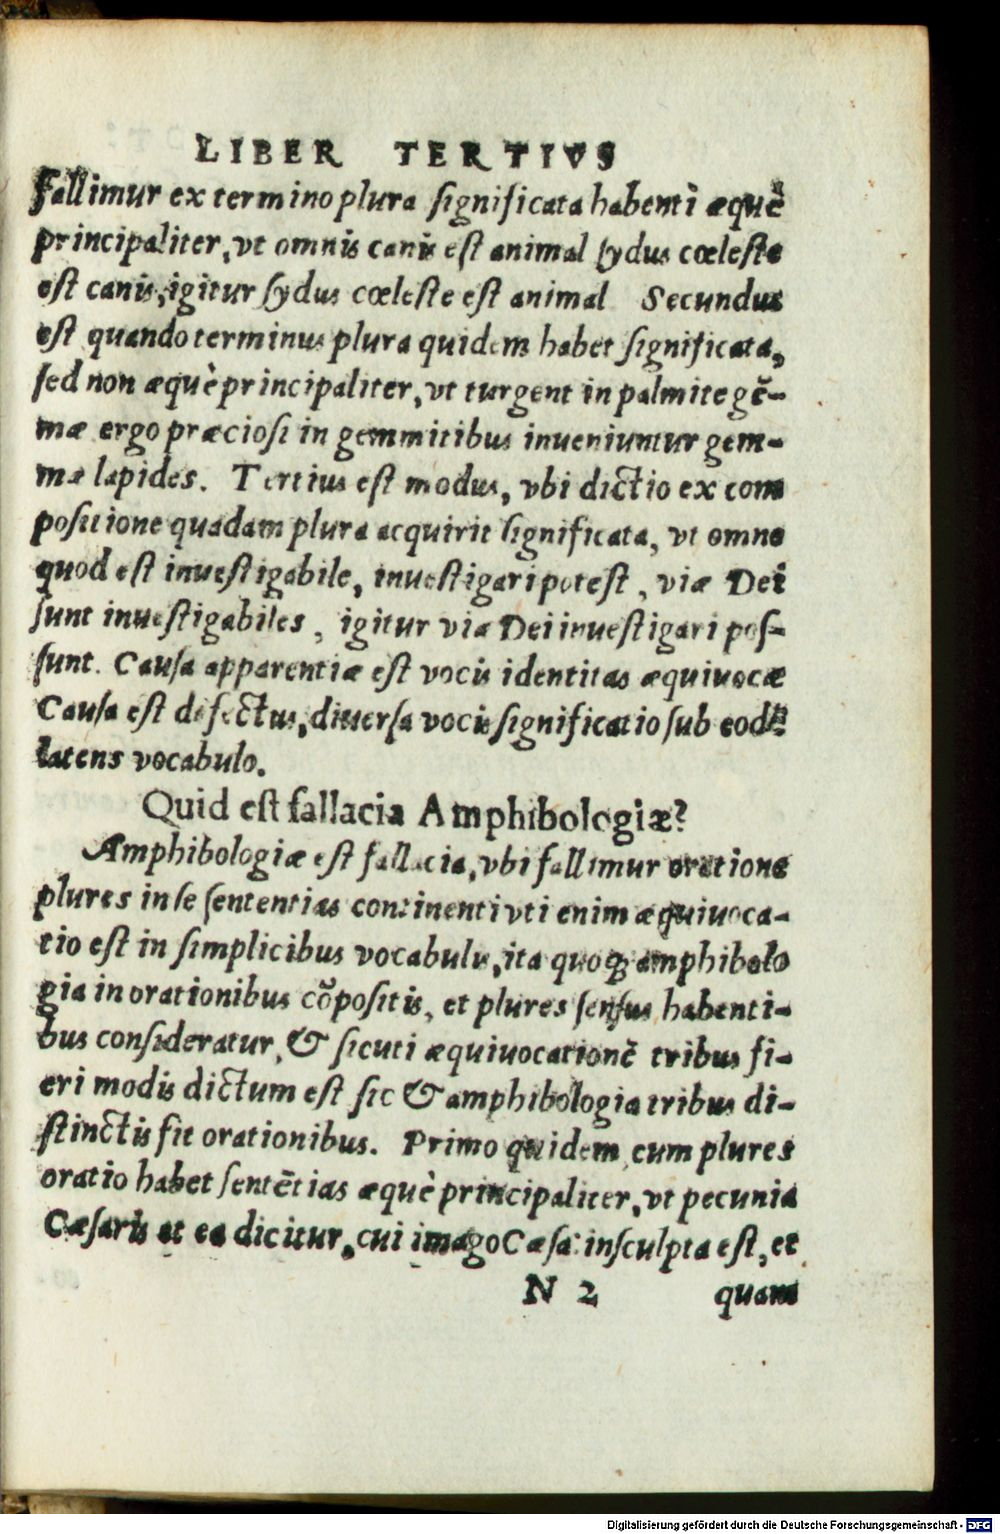 LIBER TERTIVS
Fallimur ex termino plura significata habenti æquè
principaliter, vt omnis canis est animal sydus cœleste
est canis, igitur sydus cœleste est animal Secundus
est quando terminus plura quidem habet significata,
sed non æquè principaliter, vt turgent in palmite gẽ-
mæ ergo præciosi in gemmitibus inueniuntur gem-
mæ lapides. Tertius est modus, vbi dictio ex com
positione quadam plura acquirit significata, vt omne
quod est inuestigabile, inuestigari potest, viæ Dei
sunt inuestigabiles, igitur viæ Dei inuestigari pos-
sunt. Causa apparentiæ est vocis identitas æquiuocæ
Causa est defectus, diuersa vocis significatio sub eodẽ
latens vocabulo.
Quid est fallacia Amphibologiæ?
Amphibologiæ est fallacia, vbi fallimur oratione
plures in se sententias continenti vti enim æquiuoca-
tio est in simplicibus vocabulis, ita quoqꝫ amphibolo
gia in orationibus cõpositis, et plures sensus habenti-
bus consideratur, & sicuti æquiuocationẽ tribus fi-
eri modis dictum est sic & amphibologia tribus di-
stinctis fit orationibus. Primo quidem cum plures
oratio habet sentẽtias æquè principaliter, vt pecunia
Cæsaris et ea dicitur, cui imago Cæsa: insculpta est, et
N 2 quam
Digitalisierung gefördert durch die Deutsche Forschungsgemeinschaft - DFG